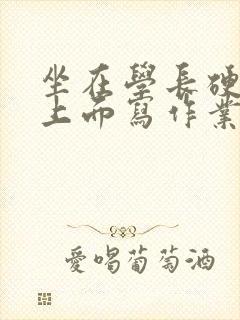 坐在學長硬
上而寫作業
愛喝葡萄酒